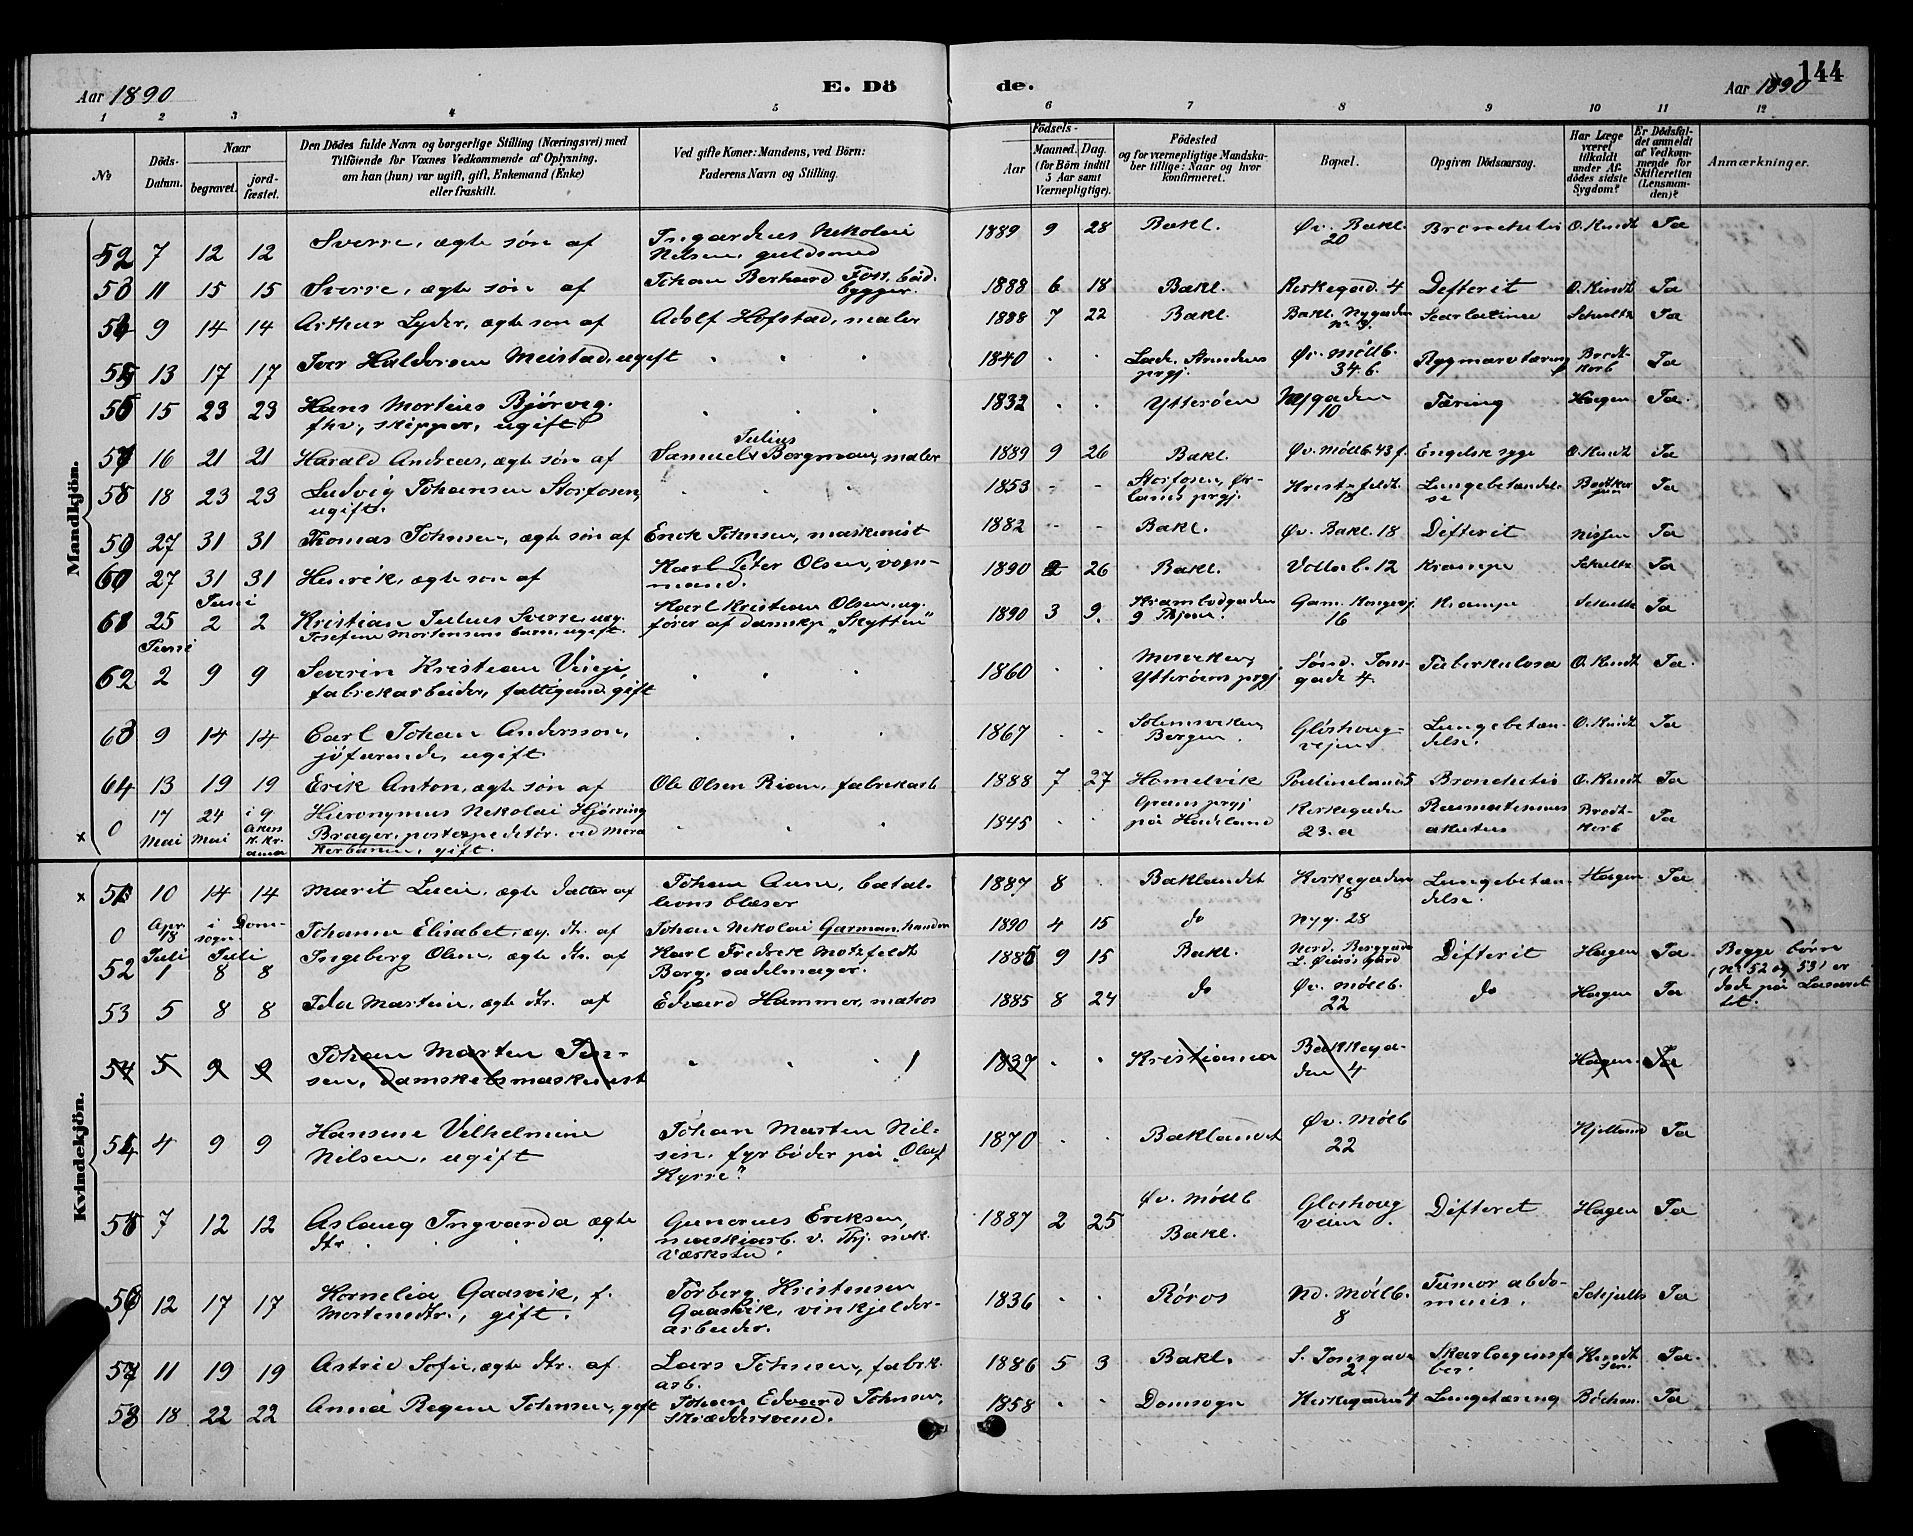 144
Aar 1890
E. Dö
de.
Aar 1890
1 2 3 4 5 6 7 8 9 10 11 12
№
Döds-Datum.
Naar
begravet.
jordfæstet.
Den Dödes fulde Navn og borgerlige Stilling (Næringsvei) med
Tilföiende for Voxnes Vedkommende af Oplysning,
om han (hun) var ugift, gift, Enkemand (Enke)
eller fraskilt.
Ved gifte Koner: Mandens, ved Börn:
Faderens Navn og Stilling.
Födsels-
Aar
Maaned. Dag.
(for Börn indtil
5 Aar samt
Værnepligtige).
Födested
og for værnepligtige Mandska-
ber tillige: Naar og hvor
konfirmeret.
Bopæl.
Opgiven Dödsaarsag.
Har Læge
været
tilkaldt
under Af-
dödes sidste
Sygdom?
Er Dödsfal-
det anmeldt
af Vedkom-
mende for
Skifteretten
(Lensman-
den)?
Anmærkninger.
Mandkjön.
52 7 12 12 Sverre, ægte søn af Nikolai Nilsen, guldsmed 1889 9 28 Bakl. Øv. Bakl. 20 O. Kindt Ja
53 11 15 15 Sverre, ægte søn af Johan Berhard Foss, bådbygger. 1888 6 18 Bakl. Kirkegad. 4 Difterit O. Kindt Ja
54 9 14 14 Arthur Lyder, ægte søn af Adolf Hofstad, maler 1888 7 22 Bakl. Bakl. Nygaden Scarlatina Schultz Ja
55 13 17 17 Iver Haldorsen Meistad, ugift 1840 Lade, Strindens prgj. Øv. Møllb. 34 b. Rygmarvtæring Brodtkorb Ja
56 15 23 23 Hans Mortius Bjørvig, fhv. skipper, ugift 1832 Ytterøen Nygaden 10 Tæring Hagen Ja
57 16 21 21 Harald Andreas, ægte søn af Samuel Julius Bergman, maler 1889 9 26 Bakl. Øv. Møllb. 43 f. Engelsk syge O. Kindt Ja
58 18 23 23 Ludvig Johansen Storfosen, ugift. 1853 Storfosen, Ørlands prgj. Lungebetændelse Ja
59 27 31 31 Thomas Johnsen, ægte søn af Erick Johnsen, maskinist 1882 Bakl. Øv. Bakl. 18 Difterit Nissen Ja
60 27 31 31 Henrik, ægte søn af Karl Peter Olsen, vognmand. 1890 2 26 Bakl. Vollab. 12 Krampe Schultz Ja
61 25 Juni 2 2 Kristian Julius Sverre, uæg. Josefine Mortensens barn, ugift. Karl Kristian Olsen, ug. fører af damskp „Skytten" 1890 3 9. Krambodgaden 9 Thjem. Gam. Kongevj 16 Krampe Schultz Ja
Juni
62 2 9 9 Severin Kristian Vinje, fabrikarbeider, fattigund. gift 1860 Mosviken, Ytterøens prgj. Sønd. Tomgade 4. Tuberkulosa O. Kindt Ja
63 9 14 14 Carl Johan Andersson, sjøfarende, ugift 1867 Solemsviken, Bergen. Gløshougvejen Lungebetændelse. O. Kindt Ja
64 13 19 19 Erik Anton, ægte søn af Ole Olsen Rian, fabrikarb 1888 7 27 Homelvik Paulinelands 5 O. Kindt Ja
x 0 17 Mai 24 Mai i 9 Akers K. Kr.ania Hieronymus Nikolai Hjøring Brager, postexpeditør ved Merakerbanen, gift. 1845 Grans prgj på Hadeland Kirkegaden 23. a Brodtkorb Ja
Kvindekjön.
x 51 10 14 14 Marit Lucie, ægte datter af Johan Aune, bataljons blæser 1887 8 Baklandet Kirkegaden 18 Lungebetændelse. Hagen Ja
0 Apr. 18 i Domsogn. Johanne Elisabet, æg. dtr. af Johan Nikolai Garman, handm 1890 4 15 do Nyg. 28
52 Juli 1 Juli 8 8 Ingeborg Oline, ægte dtr. af Karl Fredrik Motzfeldt Borg, sadelmager. 1886 9 15 Bakl. Difterit Hagen Ja Begge børn (№ 52 og 53) er døde på Lasarettet.
53 5 8 8 Ida Martine, ægte dtr. af Edvard Hammer, matros 1885 8 24 do Øv. Møllb. 22 do Hagen Ja
54 5 9 9 Johan Morten Jensen, Damskibsmaskinist 1837 Kristiania Bakkegaden 4 Hagen Ja
54 4 9 9 Hansine Vilhelmine Nilsen, ugift Johan Morten Nilsen, fyrbøder på „Olaf Kyrre". 1870 Baklandet Øv. Møllb 22 Kjelland Ja
55 7 12 12 Aslaug Ingvarda ægte dtr. Gunerius Eriksen, maskinarb. v. Thj. mek. Værksted. 1887 2 25 Øv. Møllb Bakl. Gløshougveien Difterit Hagen Ja
56 12 17 17 Kornelia Gaasvik, f. Mortensdtr., gift. Torberg Kristensen Gaasvik, vinkjelderarbeider. 1836 Røros Nd. Møllb. 8 Tumor abdominis. Schjults Ja
57 11 19 19 Astrid Sofie, ægte dtr. af Lars Johnsen, fabrik arb. 1886 5 3 Bakl. Skarlagensfeber Kindt Ja
58 18 22 22 Anna Regine Johnsen, gift Johan Edvard Johnsen, skræddersvend. 1858 Domsogn Kirkegaden 4 Lungetæring Ja